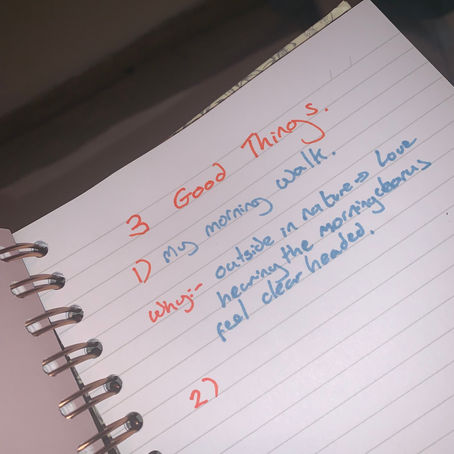 3 Good Things.
1) My morning walk.
Why:- outside in nature & Love
hearing the morning chorus
feel clear headed.
2)